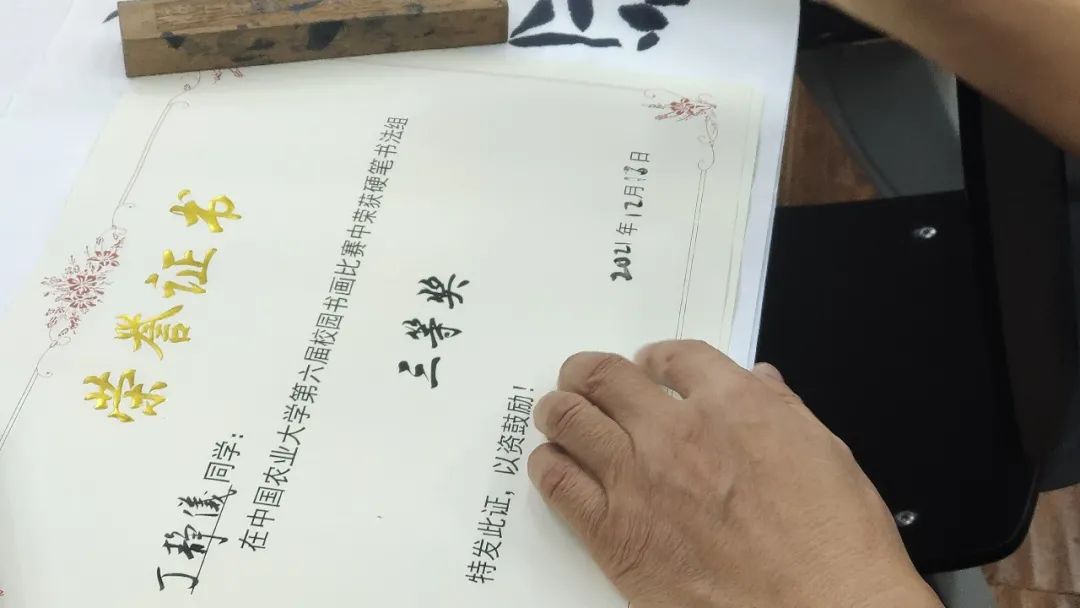 荣誉证书
丁静儀同学：
在中国农业大学第六届校园书画比赛中荣获硬笔书法组
三等奖
特发此证，以资鼓励！
2021年12月18日